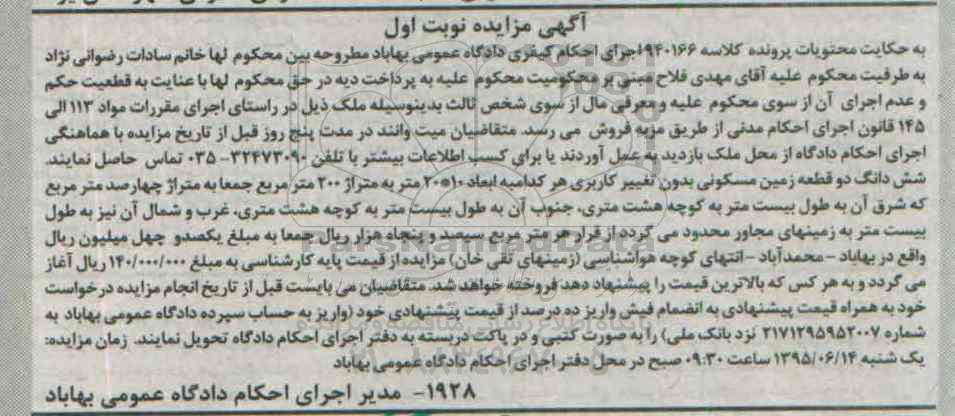 آگهی مزایده نوبت اول
به حکایت محتویات پرونده کلاسه ۹۴۰۱۶۶ اجرای احکام کیفری دادگاه عمومی بهاباد مطروحه بین محکوم لها خانم سادات رضوانی نژاد
به طرفیت محکوم علیه آقای مهدی فلاح مبنی بر محکومیت محکوم علیه به پرداخت دیه در حق محکوم لها با عنایت به قطعیت حکم
و عدم اجرای آن از سوی محکوم علیه و معرفی مال از سوی شخص ثالث بدینوسیله ملک ذیل در راستای اجرای مقررات مواد ۱۱۳ الی
۱۴۵ قانون اجرای احکام مدنی از طریق مزیه فروش می رسد. متقاضیان میت وانند در مدت پنج روز قبل از تاریخ مزایده با هماهنگی
اجرای احکام دادگاه از محل ملک بازدید به عمل آوردند یا برای کسب اطلاعات بیشتر با تلفن ۳۲۴۷۳۰۹۰-۰۳۵ تماس حاصل نمایند.
شش دانگ دو قطعه زمین مسکونی بدون تغییر کاربری هر کدامبه ابعاد ۱۰*۲۰ متر به متراژ ۲۰۰ متر مربع جمعا به متراژ چهارصد متر مربع
که شرق آن به طول بیست متر به کوچه هشت متری، جنوب آن به طول بیست متر به کوچه هشت متری، غرب و شمال آن نیز به طول
بیست متر به زمینهای مجاور محدود می گردد از قرار هر متر مربع سیصد و پنجاه هزار ریال جمعا به مبلغ یکصدو چهل میلیون ریال
واقع در بهاباد -محمدآباد -انتهای کوچه هواشناسی (زمینهای تقی خان) مزایده از قیمت پایه کارشناسی به مبلغ ۱۴۰/۰۰۰/۰۰۰ ریال آغاز
می گردد و به هر کس که بالاترین قیمت را پیشنهاد دهد فروخته خواهد شد. متقاضیان می بایست قبل از تاریخ انجام مزایده درخواست
خود به همراه قیمت پیشنهادی به انضمام فیش واریز ده درصد از قیمت پیشنهادی خود (واریز به حساب سپرده دادگاه عمومی بهاباد به
شماره ۲۱۷۱۲۹۵۹۵۲۰۰۷ نزد بانک ملی) را به صورت کتبی و در پاکت دربسته به دفتر اجرای احکام دادگاه تحویل نمایند. زمان مزایده:
یک شنبه ۱۳۹۵/۰۶/۱۴ ساعت ۰۹:۳۰ صبح در محل دفتر اجرای احکام دادگاه عمومی بهاباد
۱۹۲۸- مدیر اجرای احکام دادگاه عمومی بهاباد